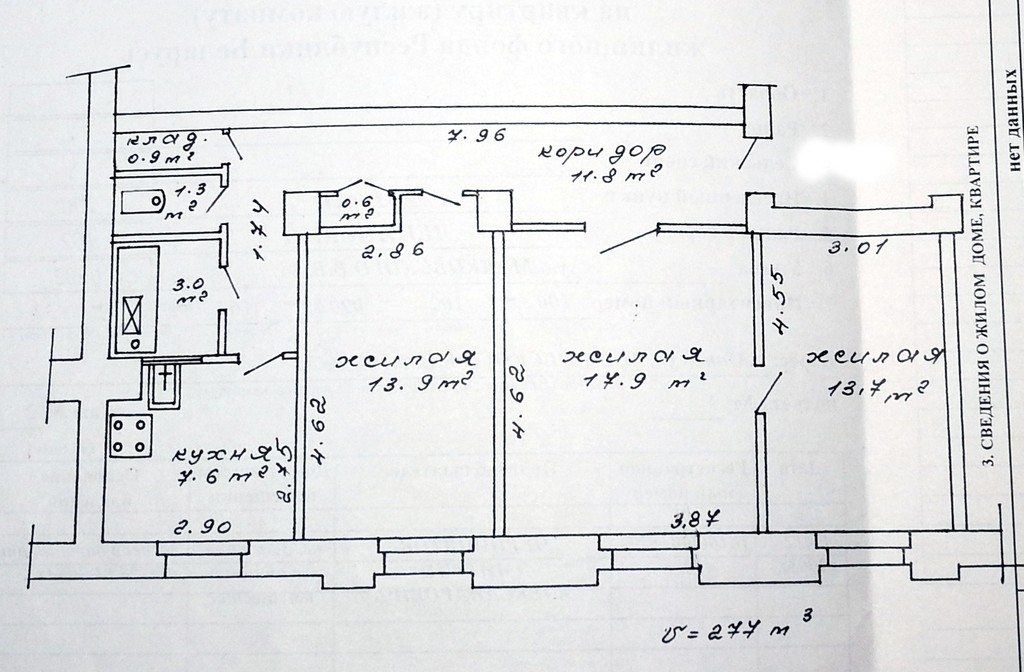 клад.
0.9 m²
7.96
коридор
11.8 m²
1.3
m²
1.74
0.6
m²
2.86
3.01
3.0
m²
4.55
жилая
13.9 m²
жилая
17.9 m²
жилая
13.7 m²
4.62
4.62
кухня
7.6 m²
2.75
2.90
3.87
v = 277 m³
3. СВЕДЕНИЯ О ЖИЛОМ ДОМЕ, КВАРТИРЕ
нет данных